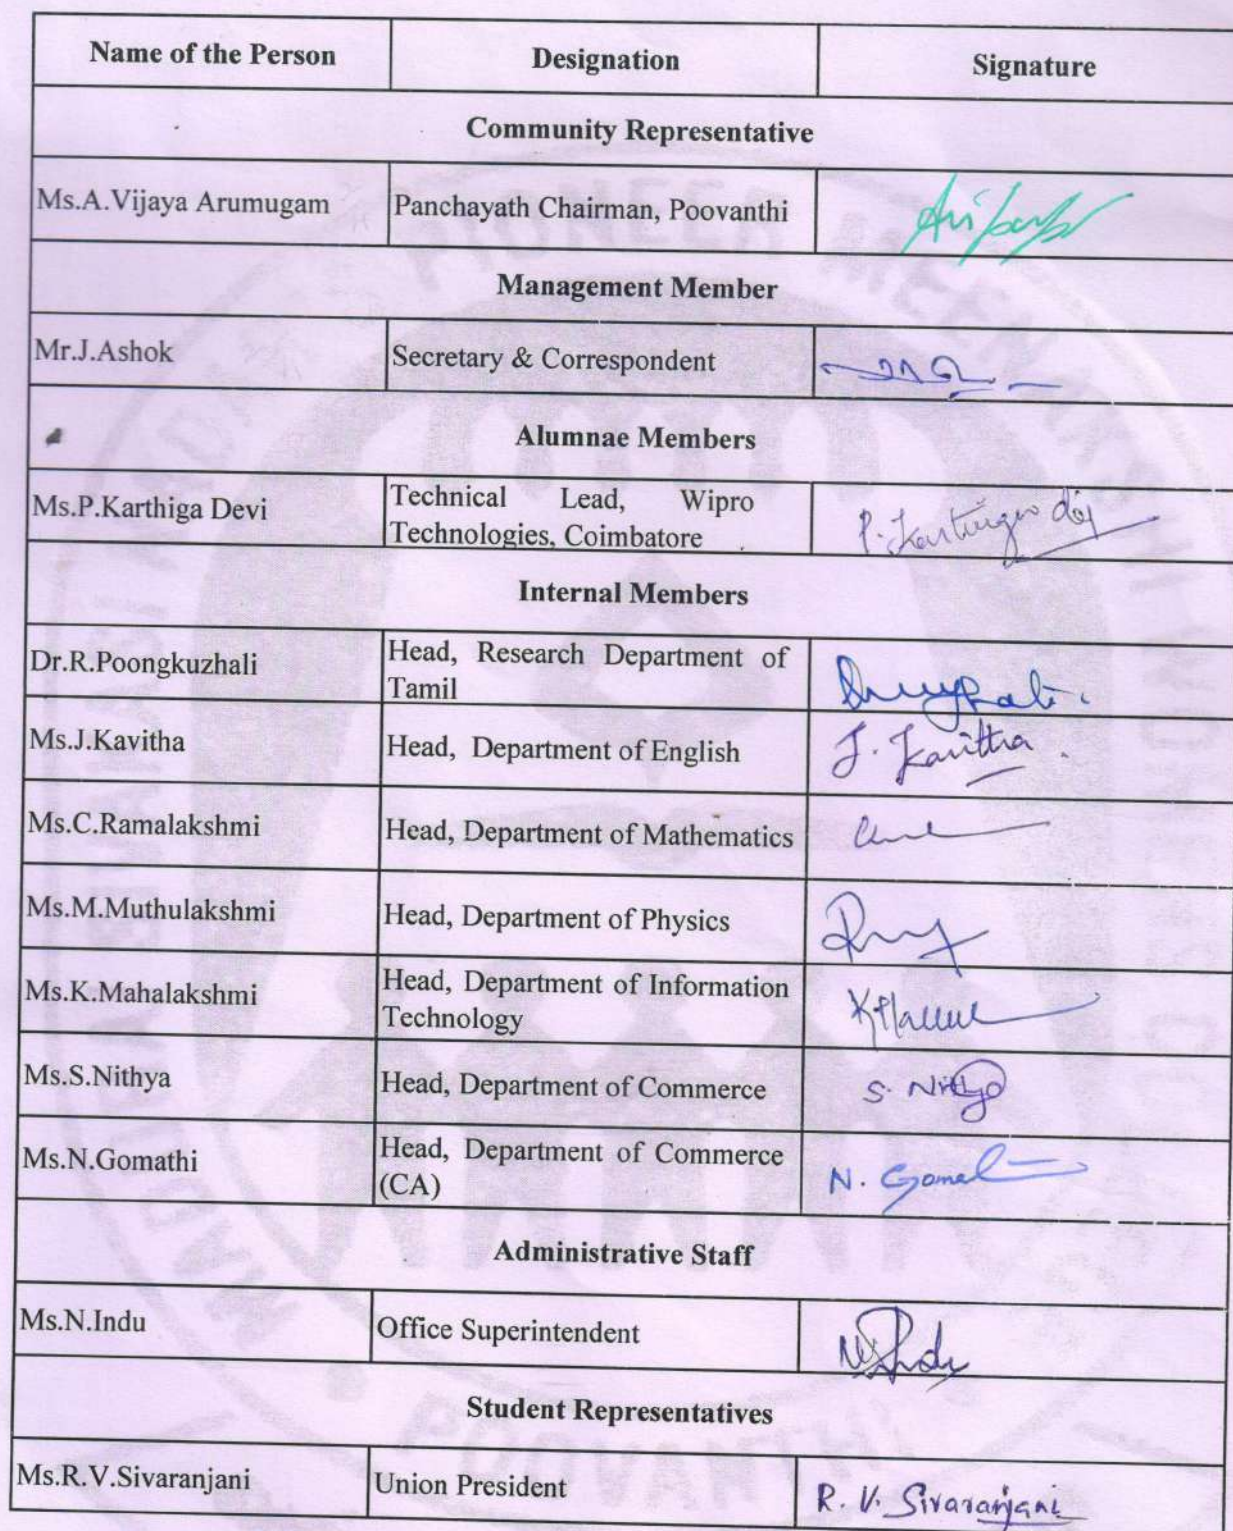 Name of the Person Designation Signature
Community Representative
Ms.A.Vijaya Arumugam Panchayath Chairman, Poovanthi
Management Member
Mr.J.Ashok Secretary & Correspondent
Alumnae Members
Ms.P.Karthiga Devi Technical Lead, Wipro
Technologies, Coimbatore
Internal Members
Dr.R.Poongkuzhali Head, Research Department of
Tamil
Ms.J.Kavitha Head, Department of English J. Kavitha
Ms.C.Ramalakshmi Head, Department of Mathematics
Ms.M.Muthulakshmi Head, Department of Physics
Ms.K.Mahalakshmi Head, Department of Information
Technology
Ms.S.Nithya Head, Department of Commerce S. Nithya
Ms.N.Gomathi Head, Department of Commerce
(CA) N.
Administrative Staff
Ms.N.Indu Office Superintendent
Student Representatives
Ms.R.V.Sivaranjani Union President R. V. Sivaranjani
PIONEER MEENAKSHI
POOVANTHI